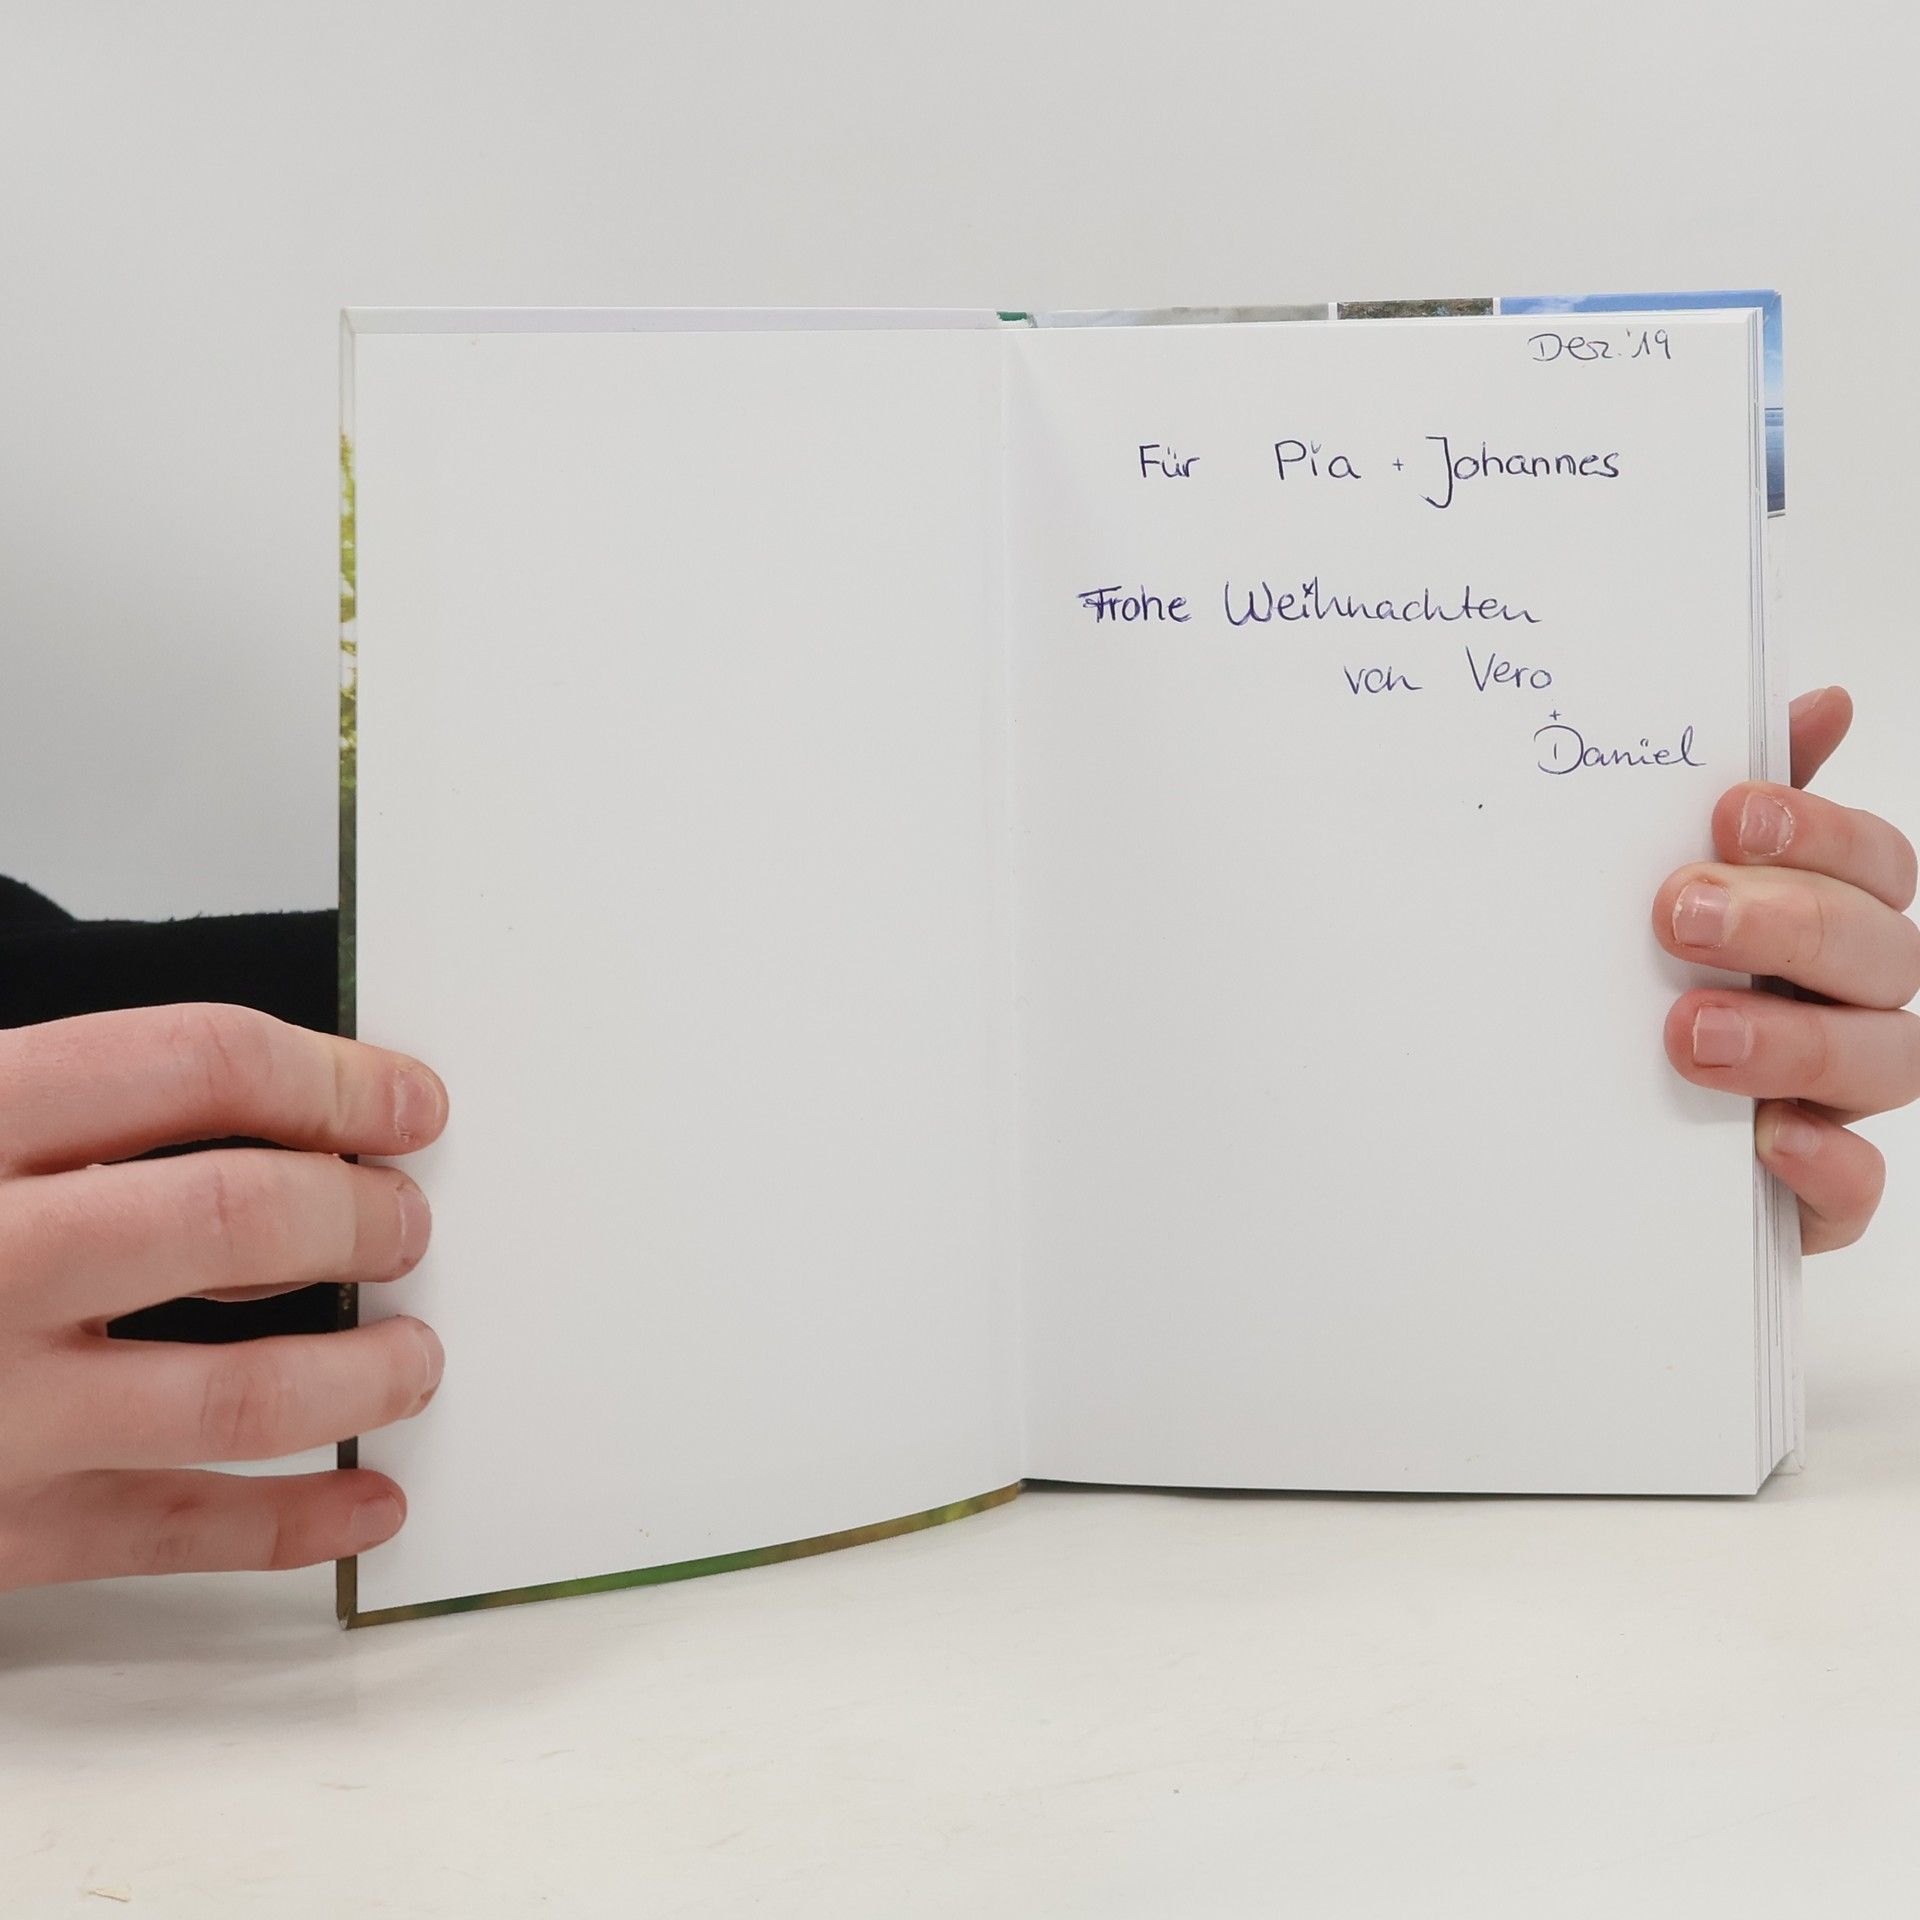 Dez. '19
Für Pia + Johannes
Frohe Weihnachten
von Vero
+
Daniel